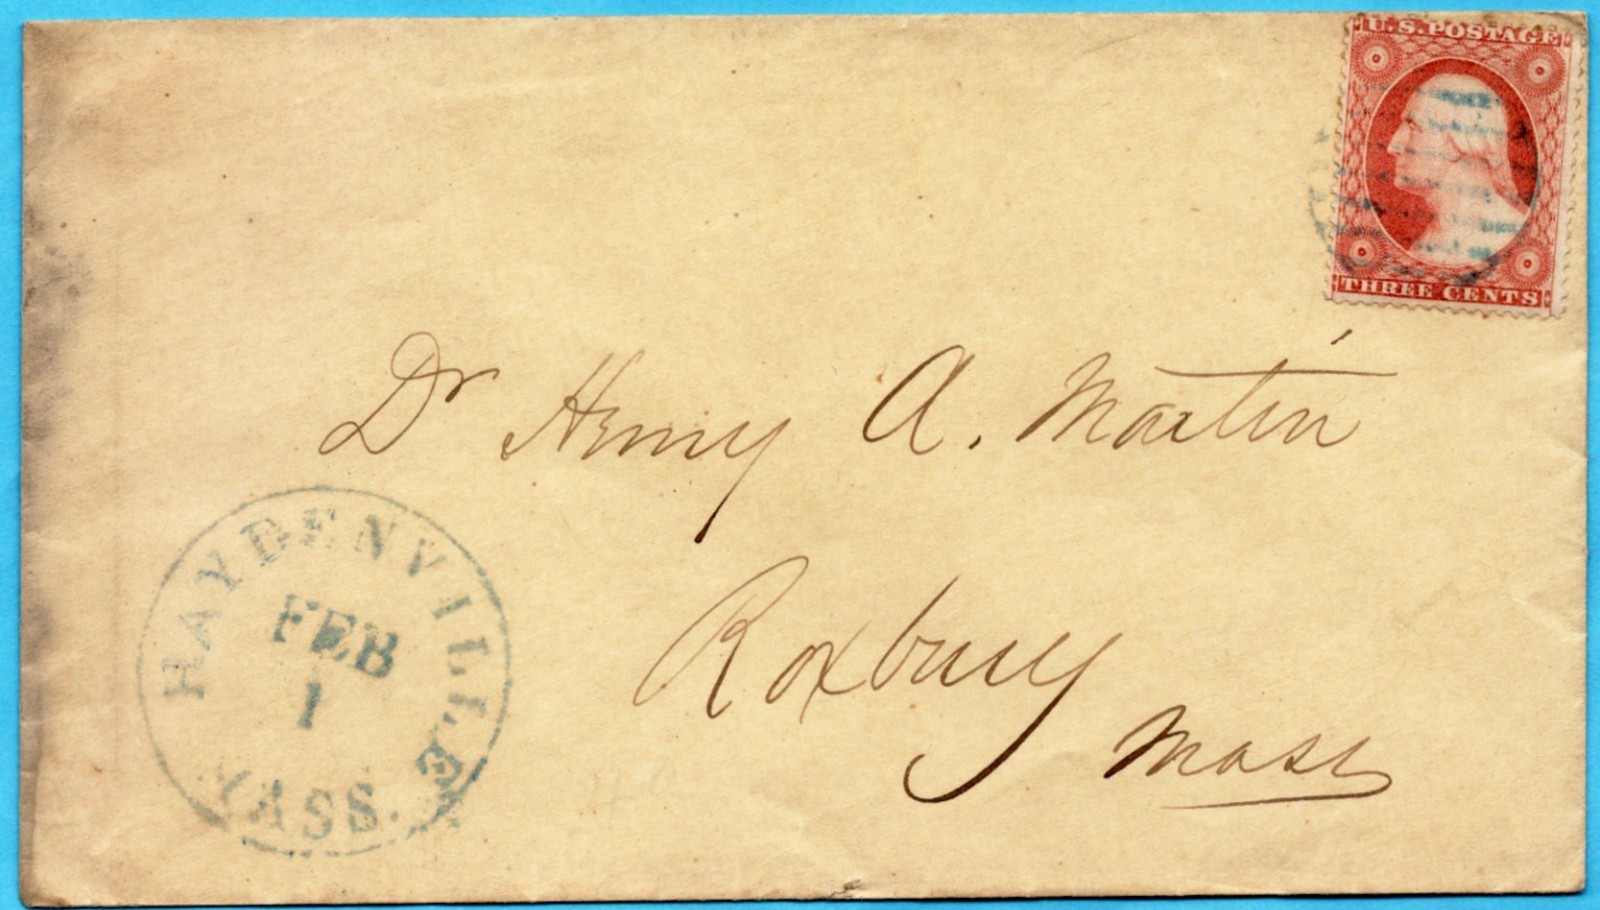 U.S. POSTAGE
THREE CENTS
Dr Henry A. Martin
Roxbury
Mass
HAYDENVILLE
FEB
1
MASS.